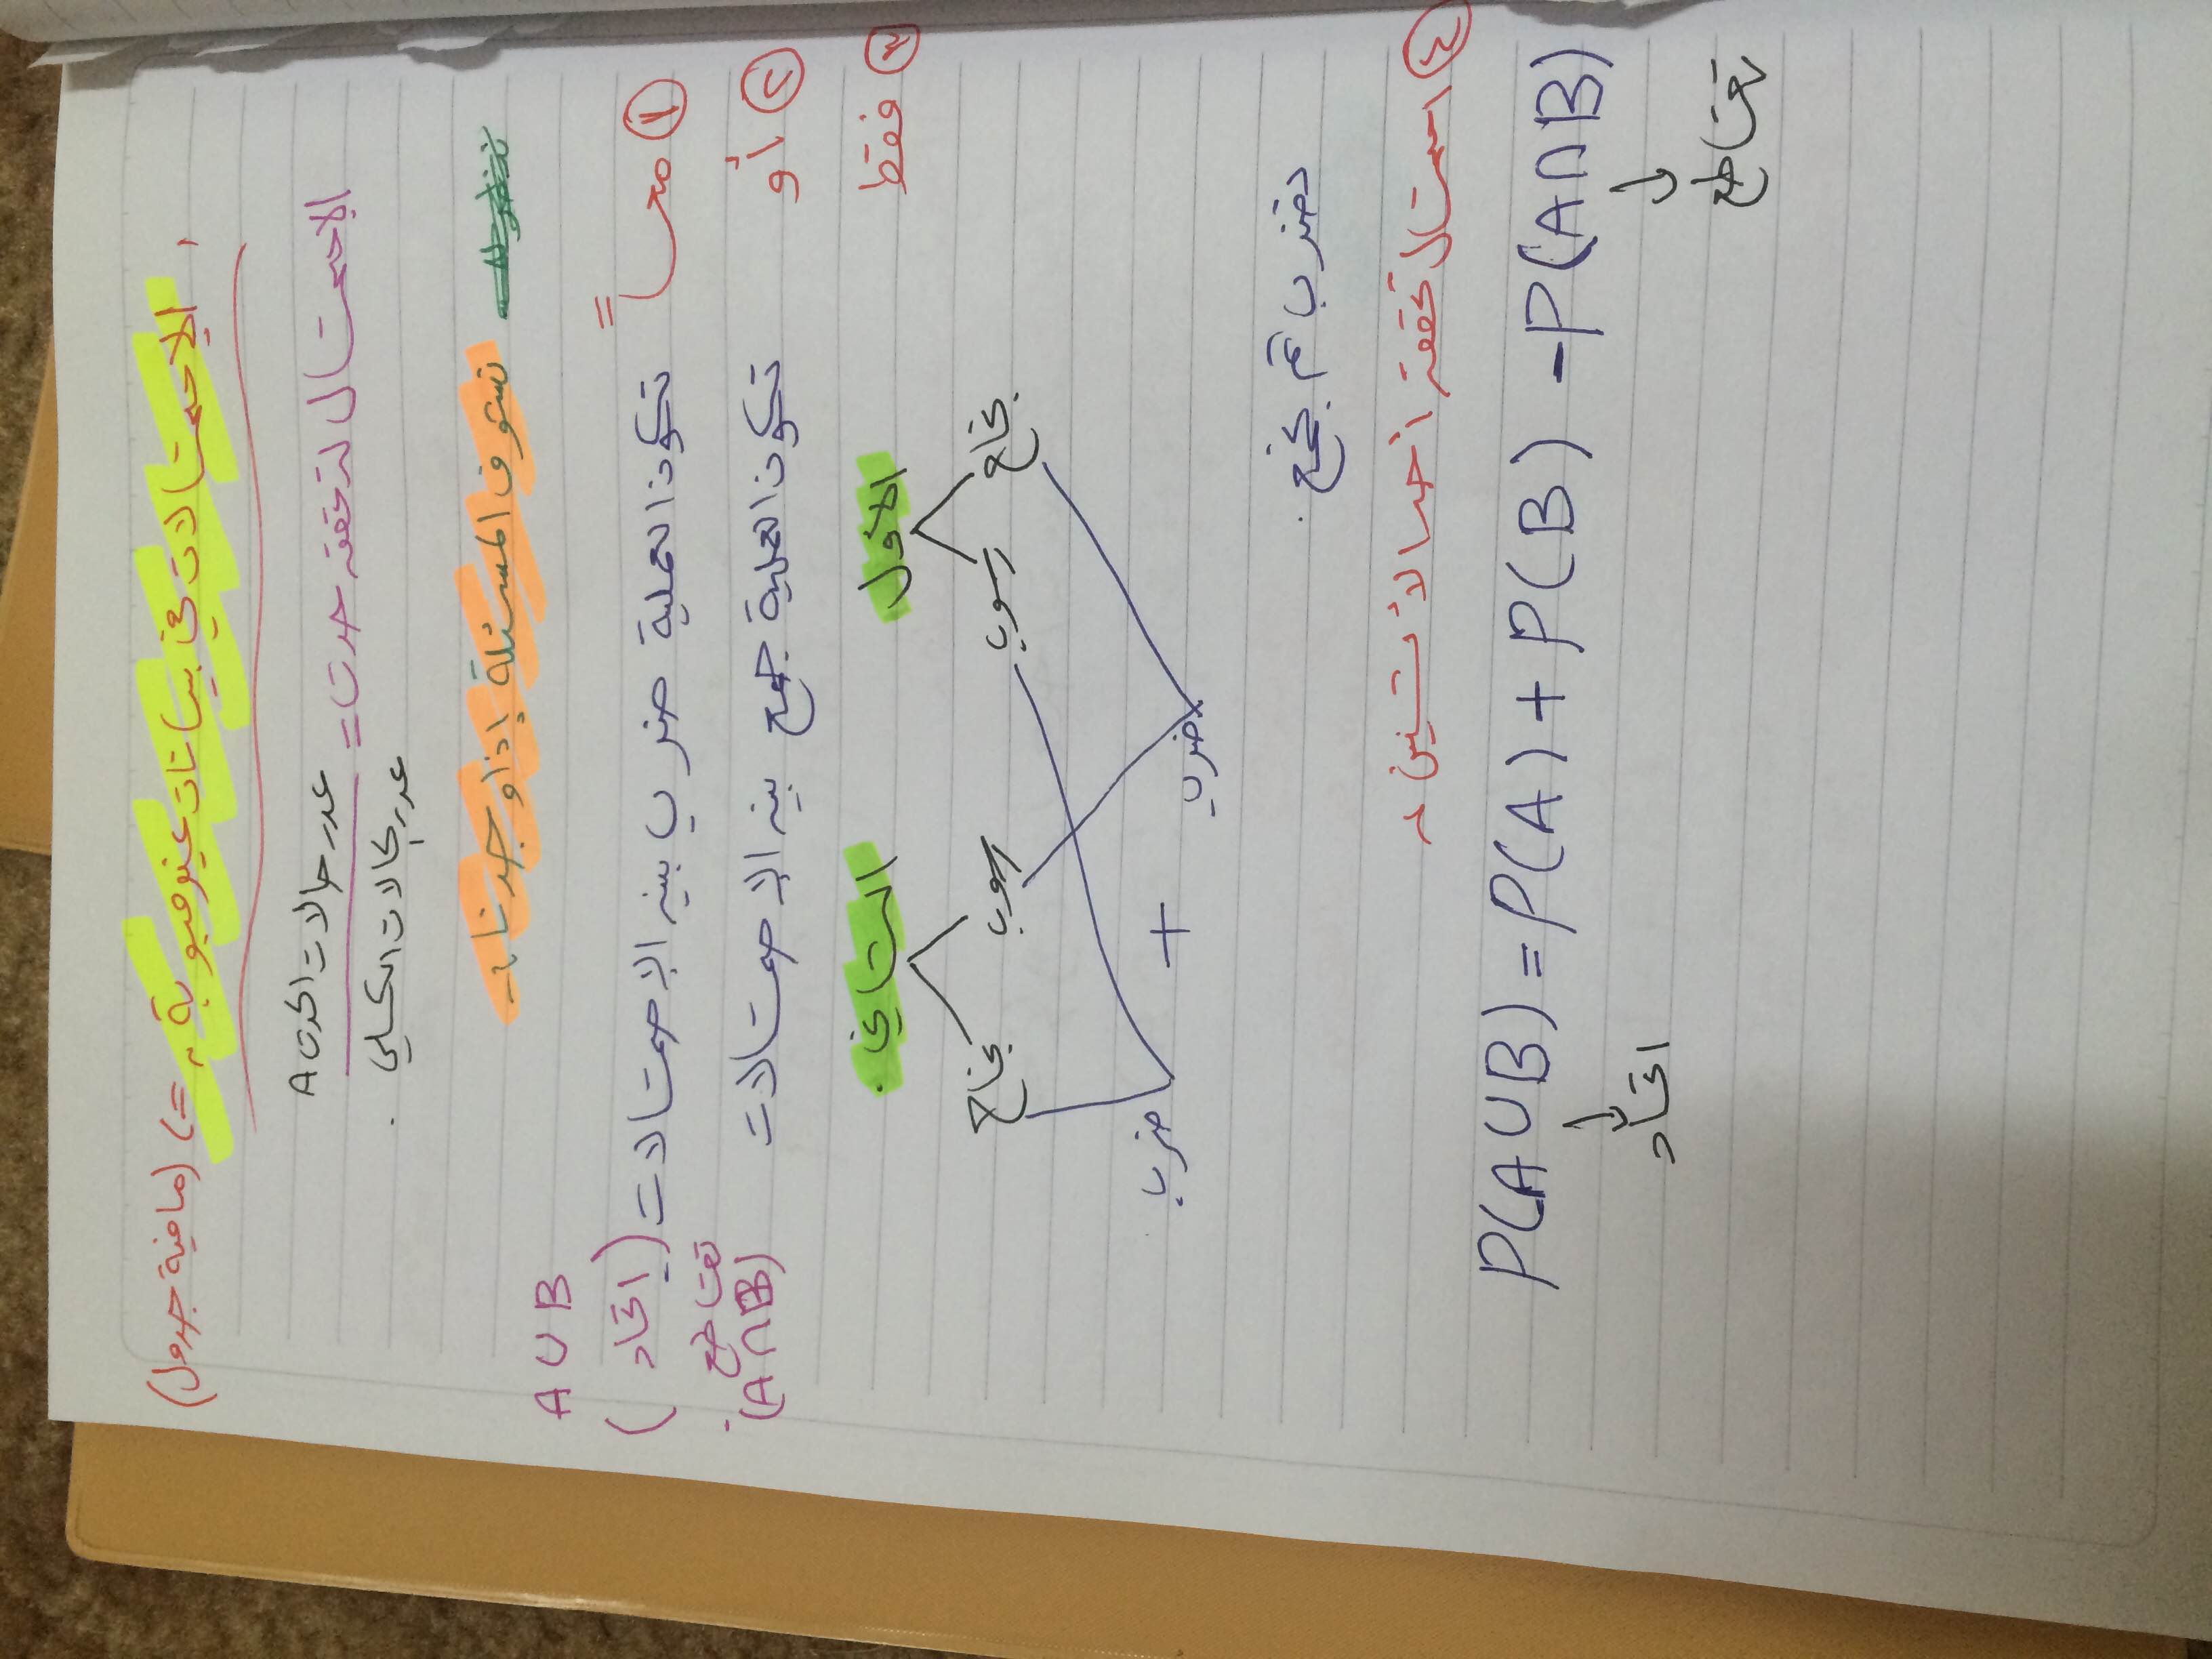 الاحتمالات في بيانات غير مبوبة :- (ما فية جدول)
الاحتمال لتحقق حدث = عدد حالات الحدث A
عدد حالات الكلي .
نشوف المسئلة إذا وجدنا :-
A U B
① معاً = تكون العملية ضرب بين الاحتمالات (اتحاد)
② أو تكون العملية جمع بين الاحتمالات تقاطع (A∩B)
③ فقط
الاول الثاني .
نجاح رسوب رسوب نجاح
ضرب + ضرب
نضرب ثم نجمع .
④ احتمال تحقق احد الأثنين :
P(A U B) = P(A) + P(B) - P(A ∩ B)
اتحاد تقاطع